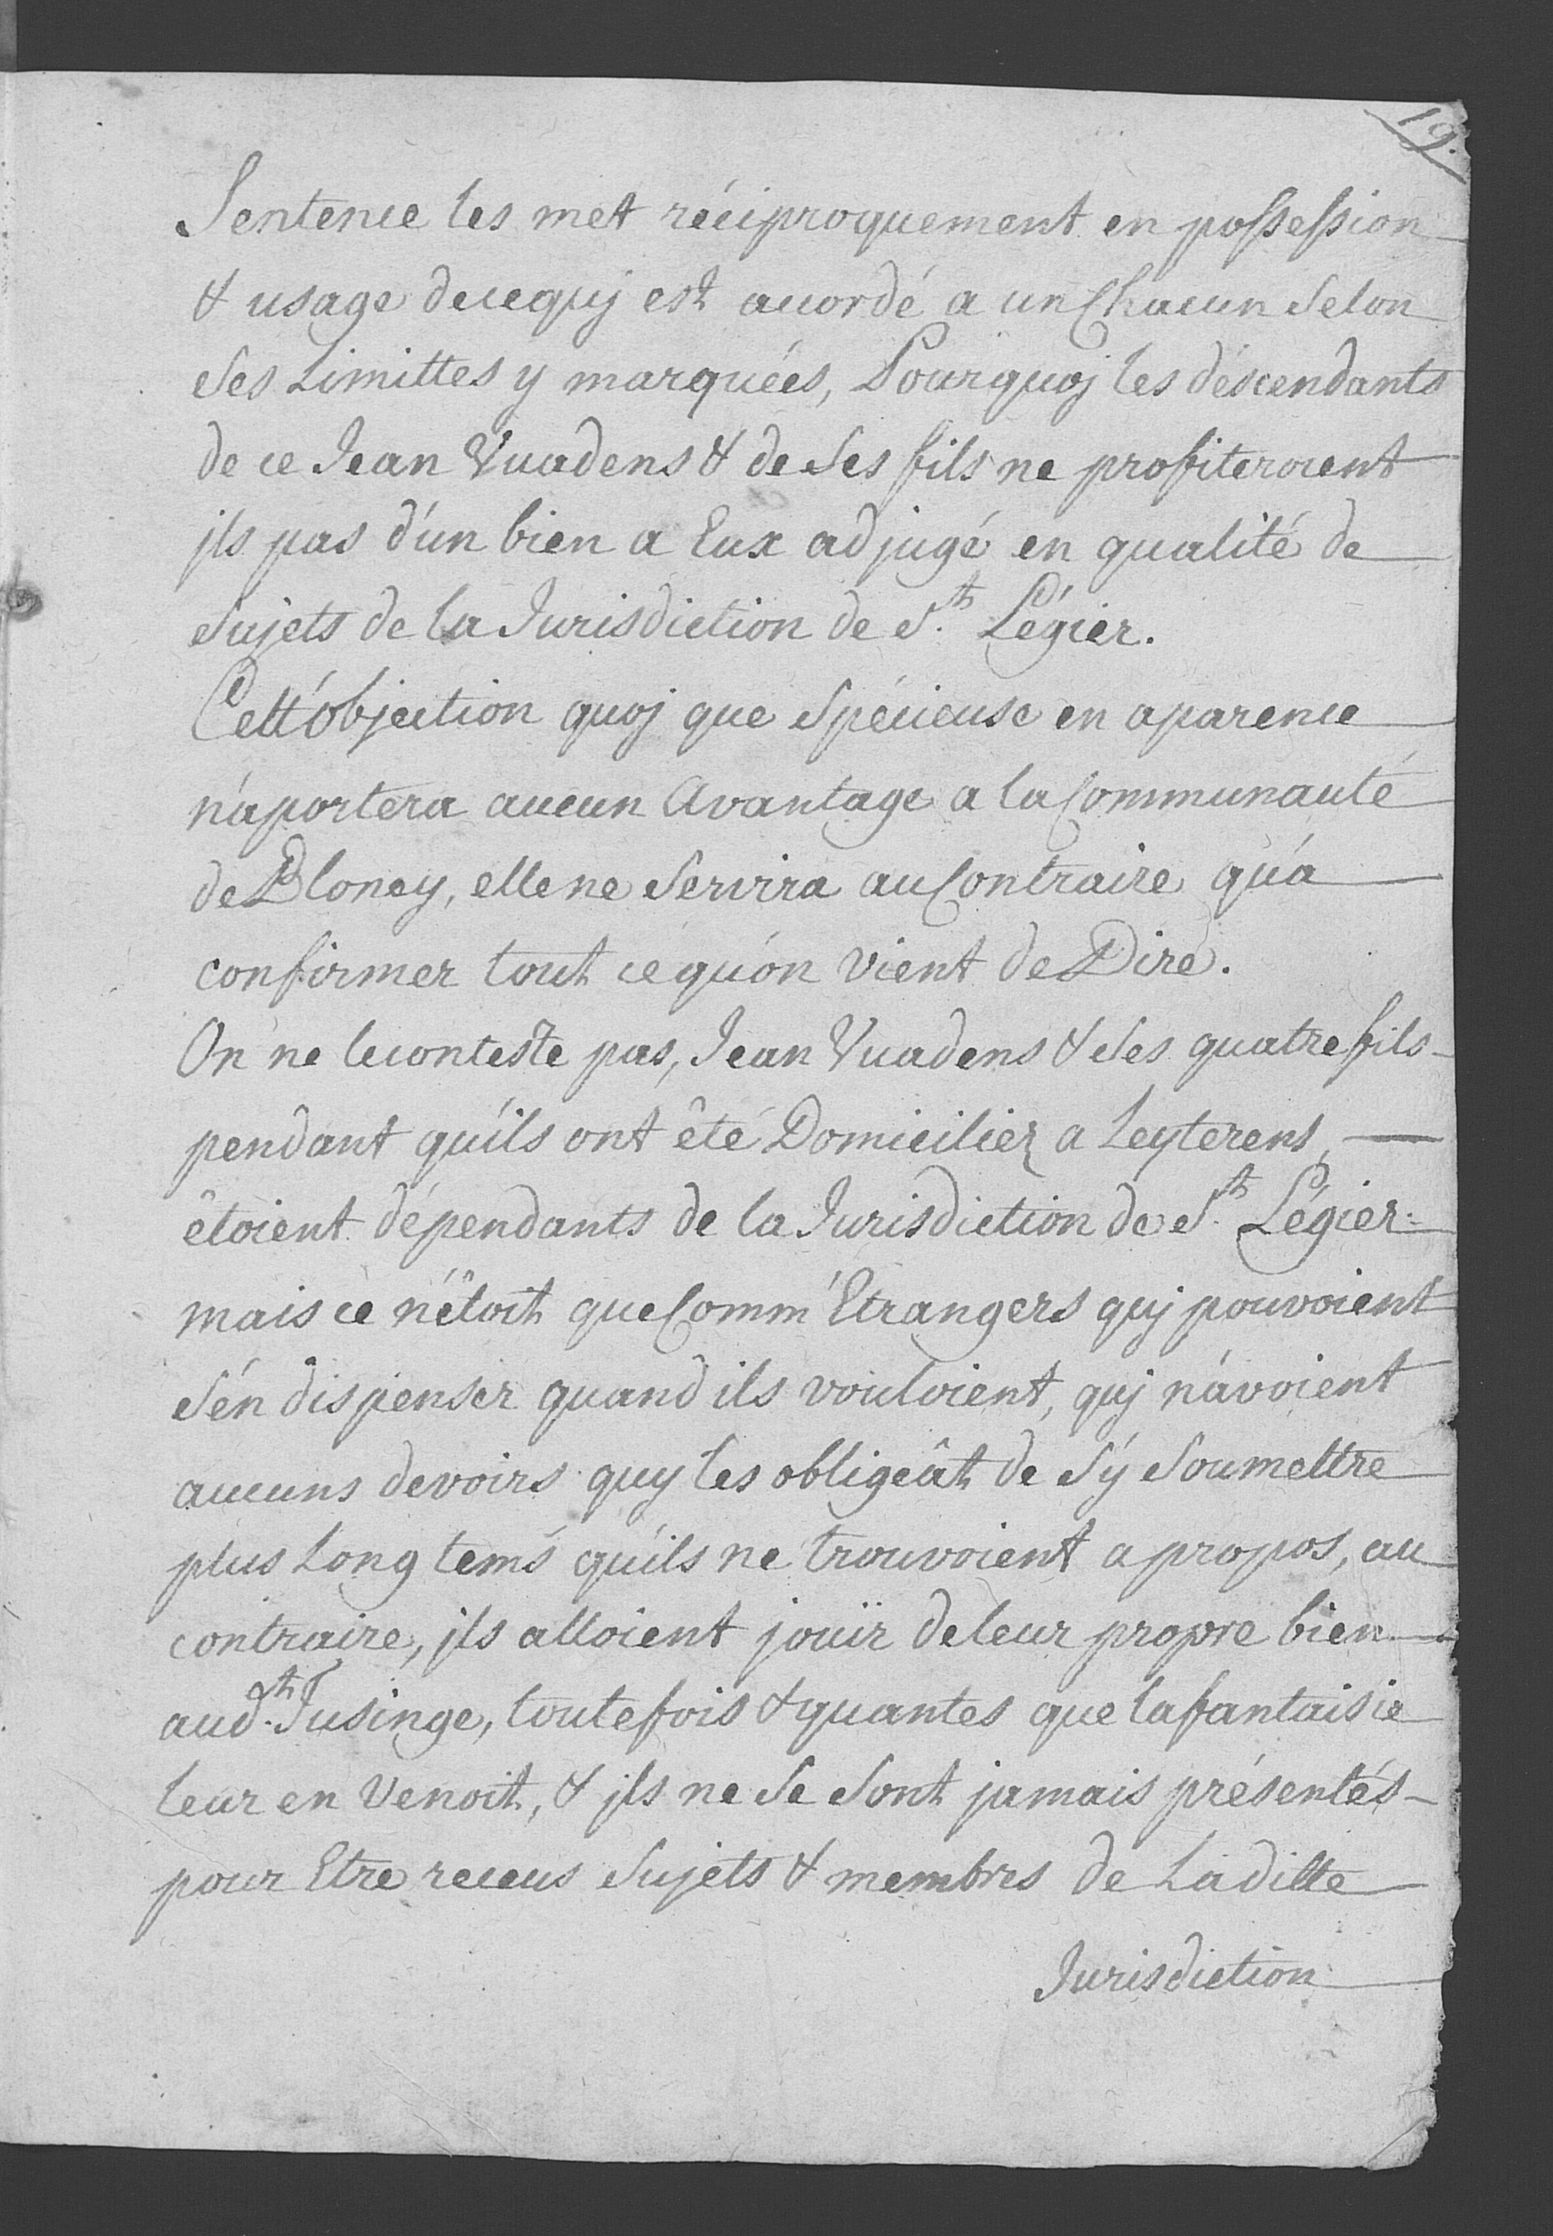 19.
Sentence les met réciproquement en possession
& usage de ce quj est accordé a un Chacun selon
ses Limittes y marquées, Pourquoj les déscendants
de ce Jean Vuadens & de ses fils ne profiteroient
jls pas d'un bien a Eux adjugé en qualité de
sujets de la Jurisdiction de St. Légier.
Cett'objection quoj que spécieuse en aparence
n'aportera aucun Avantage a la Communauté
de Blonay, elle ne servira au Contraire qu'a
confirmer tout ce qu'on vient de Dire.
On ne le conteste pas, Jean Vuadens & ses quatre fils
pendant qu'ils ont êté Domiciliez a Leyterens,
êtoient dépendants de la Jurisdiction de St. Légier:
mais ce n'êtoit que Comm' Etrangers quj pouvoient
s'en dispenser quand ils vouloient, quj n'avoient
aucuns devoirs quy les obligeât de s'y soumettre
plus Long tems qu'ils ne trouvoient a propos, au
contraire, jls alloient jouïr de leur propre bien
aud.t Fusinge, toutefois & quantes que la fantaisie
leur en Venoit, & jls ne se sont jamais présentés
pour Etre receus sujets & membres de Laditte
Jurisdiction